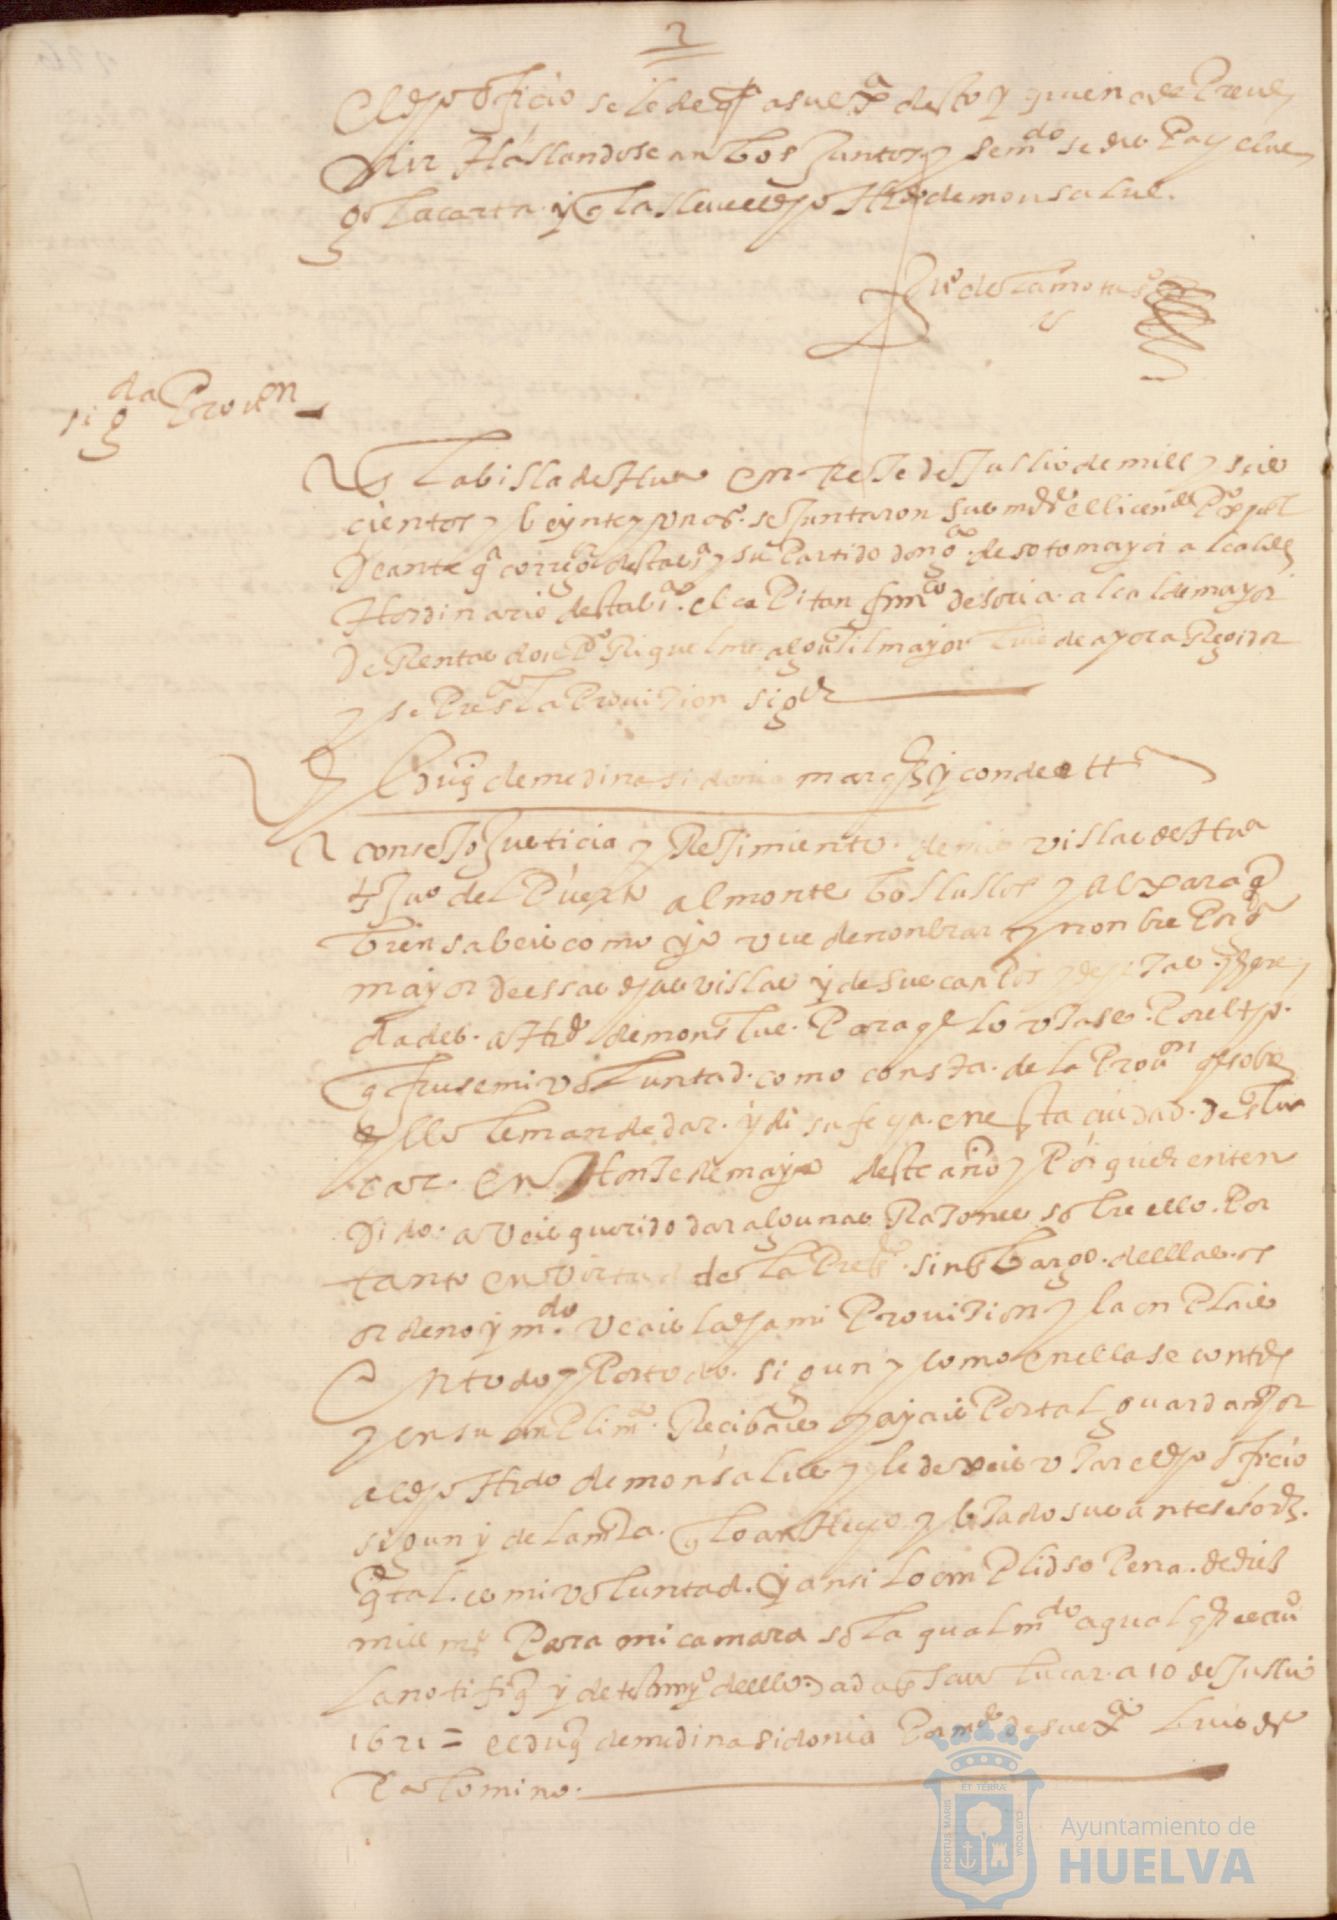 2
El dho oficio se le de qta a su exª desto y quien a de Preue
nir Hallandose anbos Juntos y se mdo se de
la carta y q la lleue el dho Hrdo de monsalue.
Juº de la mota
sigda Prouon
En la billa de Hua en trese de Jullio de mill y seis
cientos y beynte y un os. se Juntaron sus mdes el licendo
Deante qª corregor desta bª y su Partido don gº de sotomayor alcalde
Hordinario desta biª. el caPitan franco de soria alcalde mayor
de Rentas don Pº Riquelme alguasil mayor luis de ayora Regidor
y se Presª la Prouision sigte
El duq de medina sidonia marqs y conde ett
consejo Justicia y Regimiento de mis villas de Hua
sn Juº del Puerto almonte bollullos y alxaraq
bien sabeis como yo use de nonbrar y nonbre Por gª
mayor de essas dhas villas y de sus canPos
dades. a Hrdo de monslue. Para qe lo usase. Por el tpo.
q fuese mi voluntad. como consta. de la Prouon qe sobre
ello le mande dar. y di safeya. en esta ciudad. de sn lu
car. en Honse de mayo deste año y Por que he enten
dido. aueis querido dar algunas Rasones sobre ello. Por
tanto en virtud de la Preste. sin enbargo. de ellas. os
ordeno y mdo. veais la dha mi Prouision y la cunPlais
En todo y Por todo. sigun y como en ella se contie
y en su cunPlimto. Recibais y ayais Por tal guarda mayor
al dho Hrdo de monsalue y le dexeis usar el dho oficio
sigun y de la mra. q lo an Heho y usado sus antesesores.
q tal. es mi voluntad. y ansi lo cumPlid so Pena. de dies
mill mrs Para mi camara so la qual mdo a qualqr escriuº
la notifiq y de testimyº de ello. dada en san lucar. a 10 de Jullio
1621 = el duq de medina sidonia Por mdo de su exª luis de
Palomino.
PORTUS MARIS
ET TERRAE
CUSTODIA
Ayuntamiento de
HUELVA